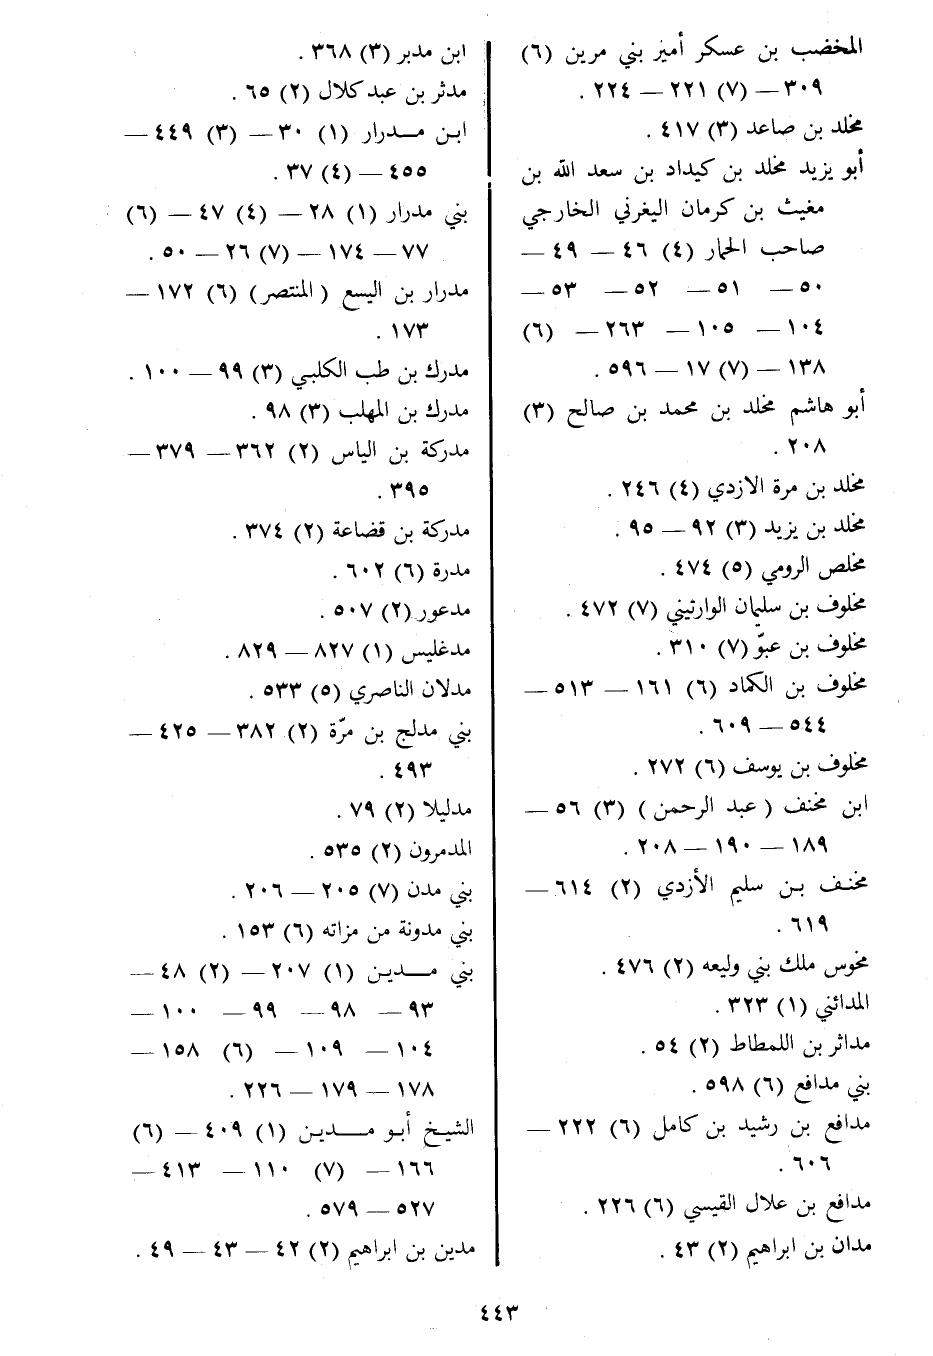 المخضب بن عسكر أمير بني مرين (٦)
٣٠٩ — (٧) ٢٢١ — ٢٢٤ .
مخلد بن صاعد (٣) ٤١٧ .
أبو يزيد مخلد بن كيداد بن سعد الله بن
مغيث بن كرمان اليغرني الخارجي
صاحب الحمار (٤) ٤٦ — ٤٩ —
٥٠ — ٥١ — ٥٢ — ٥٣ —
١٠٤ — ١٠٥ — ٢٦٣ — (٦)
١٣٨ — (٧) ١٧ — ٥٩٦ .
أبو هاشم مخلد بن محمد بن صالح (٣)
٢٠٨ .
مخلد بن مرة الازدي (٤) ٢٤٦ .
مخلد بن يزيد (٣) ٩٢ — ٩٥ .
مخلص الرومي (٥) ٤٧٤ .
مخلوف بن سليمان الوارثيني (٧) ٤٧٢ .
مخلوف بن عبوّ (٧) ٣١٠ .
مخلوف بن الكماد (٦) ١٦١ — ٥١٣ —
٥٤٤ — ٦٠٩ .
مخلوف بن يوسف (٦) ٢٧٢ .
ابن مخنف ( عبد الرحمن ) (٣) ٥٦ —
١٨٩ — ١٩٠ — ٢٠٨ .
مخنف بن سليم الأزدي (٢) ٦١٤ —
٦١٩ .
مخوس ملك بني وليعه (٢) ٤٧٦ .
المدائني (١) ٣٢٣ .
مدائر بن اللمطاط (٢) ٥٤ .
بني مدافع (٦) ٥٩٨ .
مدافع بن رشيد بن كامل (٦) ٢٢٢ —
٦٠٦ .
مدافع بن علال القيسي (٦) ٢٢٦ .
مدان بن ابراهيم (٢) ٤٣ .
ابن مدبر (٣) ٣٦٨ .
مدثر بن عبد كلال (٢) ٦٥ .
ابن مدرار (١) ٣٠ — (٣) ٤٤٩ —
٤٥٥ — (٤) ٣٧ .
بني مدرار (١) ٢٨ — (٤) ٤٧ — (٦)
٧٧ — ١٧٤ — (٧) ٢٦ — ٥٠ .
مدرار بن اليسع ( المنتصر ) (٦) ١٧٢ —
١٧٣ .
مدرك بن طب الكلبي (٣) ٩٩ — ١٠٠ .
مدرك بن المهلب (٣) ٩٨ .
مدركة بن الياس (٢) ٣٦٢ — ٣٧٩ —
٣٩٥ .
مدركة بن قضاعة (٢) ٣٧٤ .
مدرة (٦) ٦٠٢ .
مدعور (٢) ٥٠٧ .
مدغليس (١) ٨٢٧ — ٨٢٩ .
مدلان الناصري (٥) ٥٣٣ .
بني مدلج بن مرّة (٢) ٣٨٢ — ٤٢٥ —
٤٩٣ .
مدليلا (٢) ٧٩ .
المدمرون (٢) ٥٣٥ .
بني مدن (٧) ٢٠٥ — ٢٠٦ .
بني مدونة من مزاته (٦) ١٥٣ .
بني مدين (١) ٢٠٧ — (٢) ٤٨ —
٩٣ — ٩٨ — ٩٩ — ١٠٠ —
١٠٤ — ١٠٩ — (٦) ١٥٨ —
١٧٨ — ١٧٩ — ٢٢٦ .
الشيخ أبو مدين (١) ٤٠٩ — (٦)
١٦٦ — (٧) ١١٠ — ٤١٣ —
٥٢٧ — ٥٧٩ .
مدين بن ابراهيم (٢) ٤٢ — ٤٣ — ٤٩ .
٤٤٣